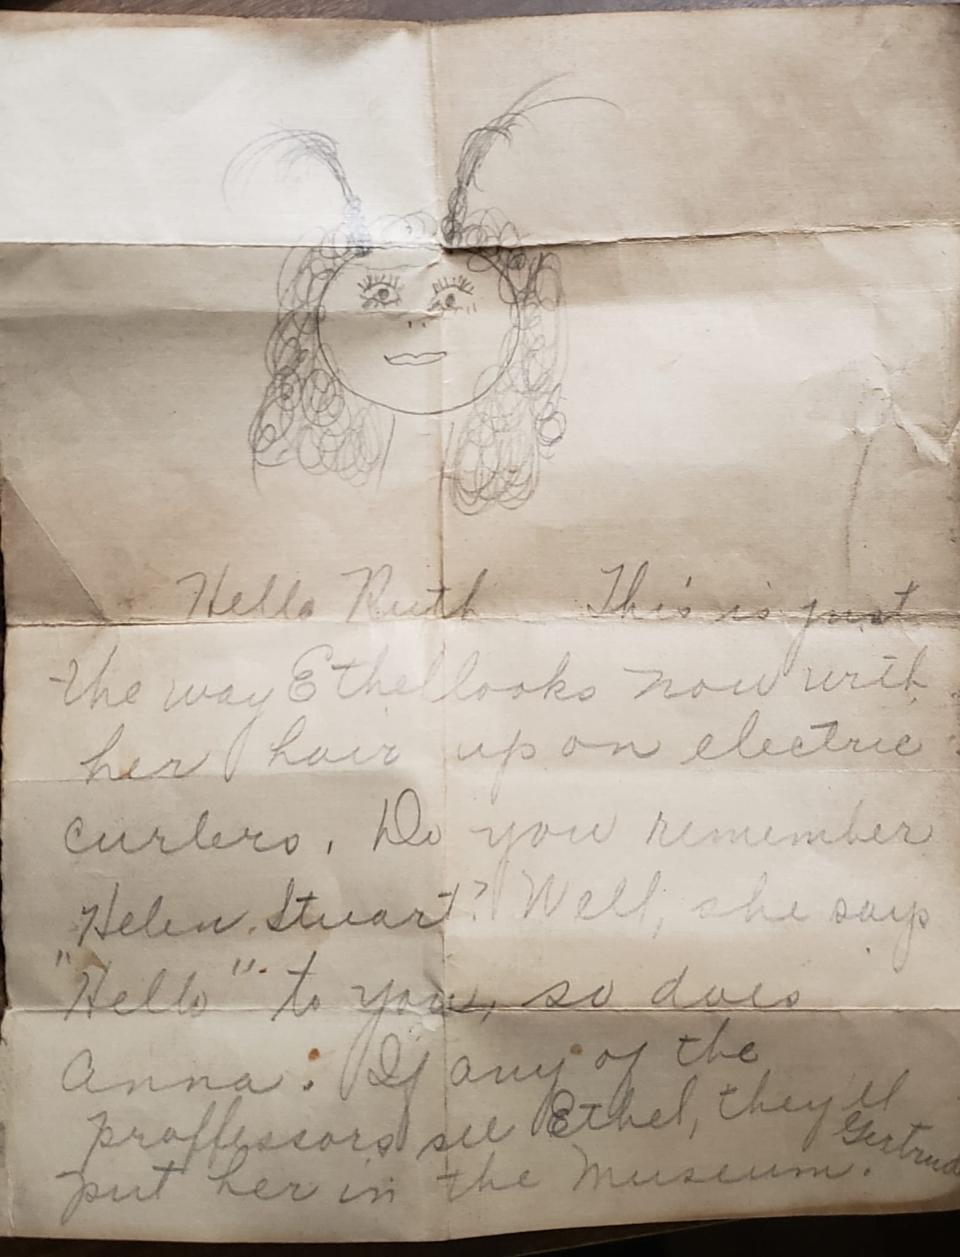 Hello Ruth This is just
the way Ethel looks now with
her hair up on electric
curlers. Do you remember
Helen Stuart? Well, she says
"Hello" to you, so does
Anna. If any of the
proffessors see Ethel, they'll
put her in the Museum.
Gertrud